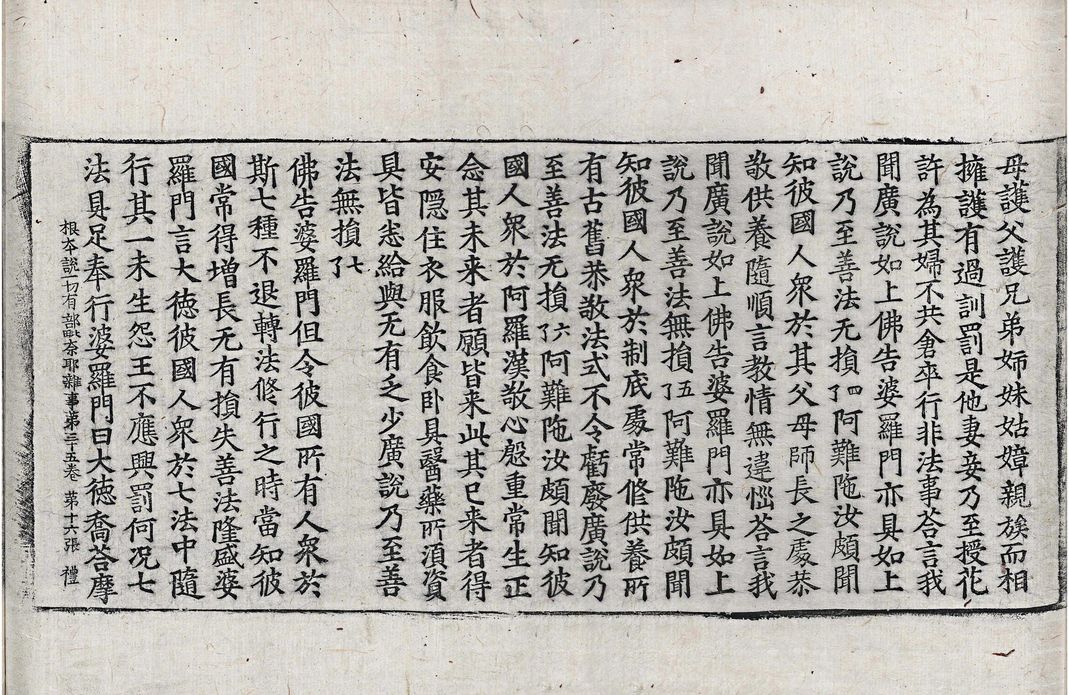 母護父護兄弟姉妹姑嫜親族而相
擁護有過訓罰是他妻妾乃至授花
許為其婦不共倉卒行非法事荅言我
聞廣說如上佛告婆羅門亦具如上
說乃至善法无損四了阿難陁汝頗聞
知彼國人衆於其父母師長之處恭
敬供養隨順言教情無違惱荅言我
聞廣說如上佛告婆羅門亦具如上
說乃至善法無損五了阿難陁汝頗聞
知彼國人衆於制底處常修供養所
有古舊恭敬法式不令虧廢廣說乃
至善法无損六了阿難陁汝頗聞知彼
國人衆於阿羅漢敬心慇重常生正
念其未来者願皆来此其已来者得
安隱住衣服飲食卧具醫藥所湏資
具皆悉給與无有乏少廣說乃至善
法無損七了
佛告婆羅門但令彼國所有人衆於
斯七種不退轉法修行之時當知彼
國常得增長无有損失善法隆盛婆
羅門言大德彼國人衆於七法中隨
行其一未生怨王不應興罰何况七
法具足奉行婆羅門曰大德喬荅摩
根本說一切有部毗奈耶雜事第三十五卷 第十六張 禮